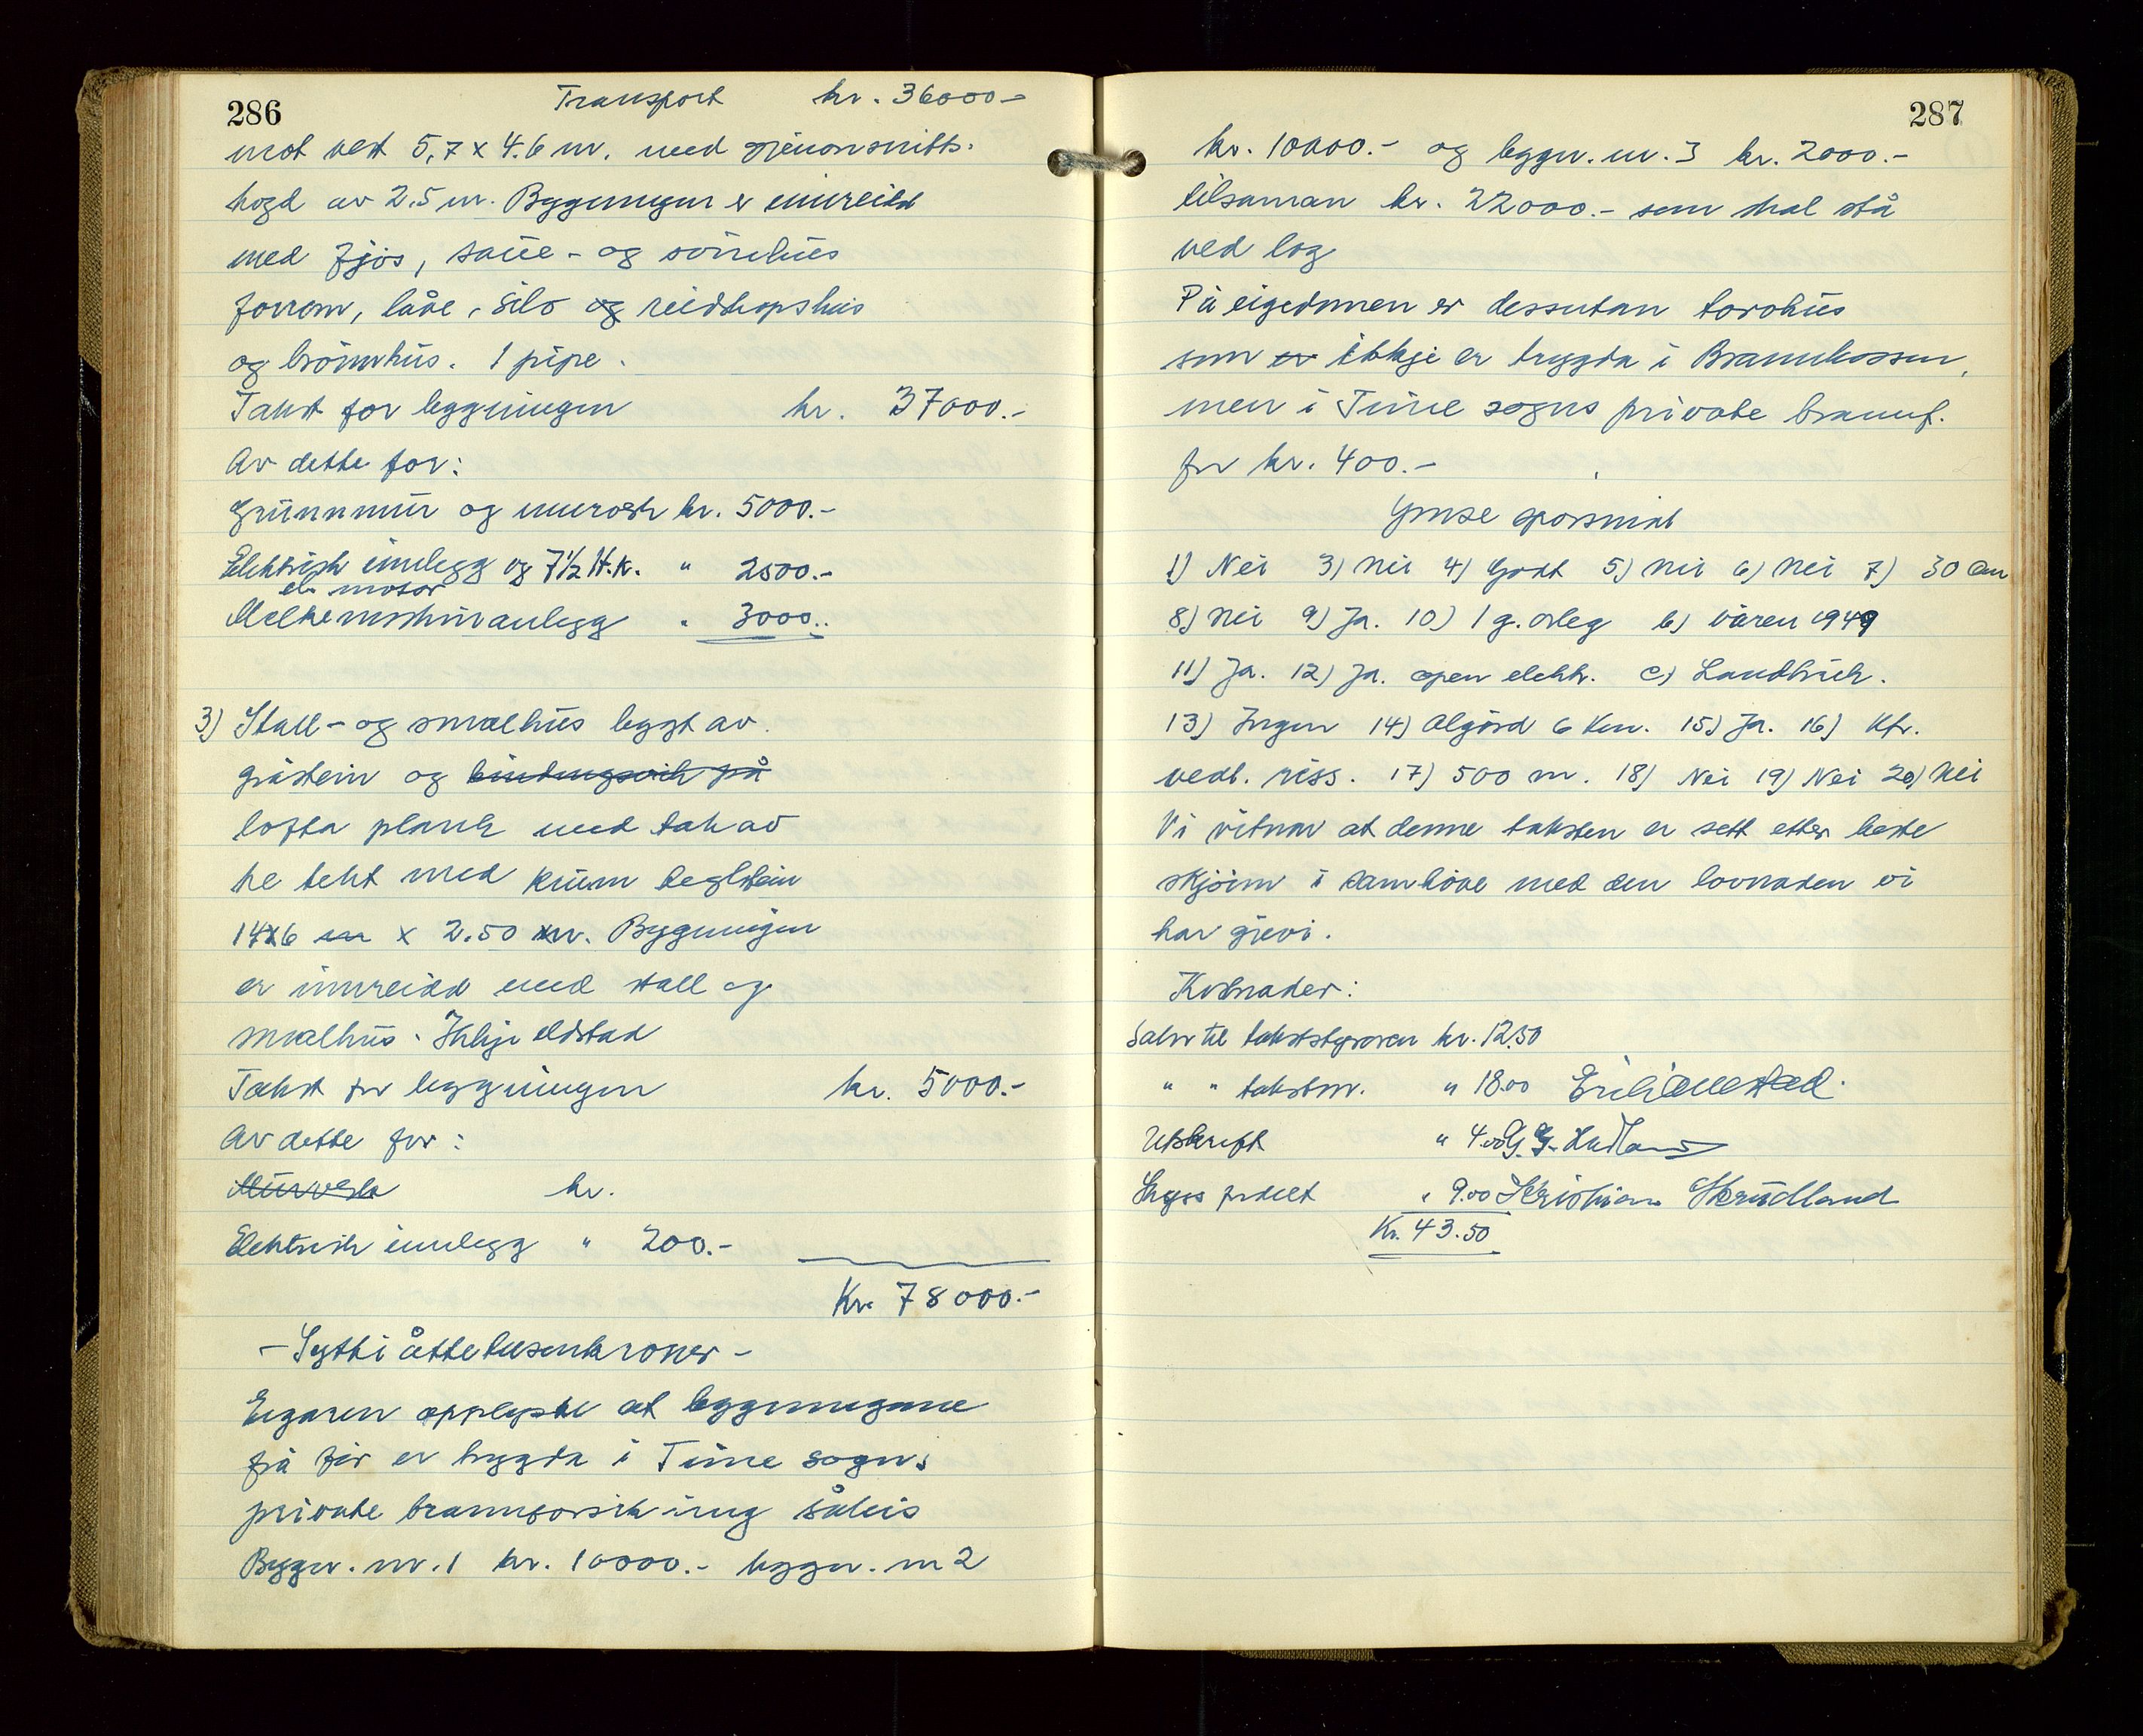 286
Transport kr. 36000-
mot vest 5,7 x 4.6 m. med gjenomsnitts-
høgd av 2.5 m. Bygningen er innreidd
med fjøs, saue- og svinehus
forrom, låve, silo og reidskapshus
og brønnhus. 1 pipe.
Takst for bygningen kr. 37000.-
Av dette for:
Grunnmur og murverk kr. 5000.-
Elektrisk innlegg og 7½ H.K. " 2500.-
el. motor
Melkemaskinanlegg " 3000..
3) Stall- og smalhus bygt av
gråstein og bindingsverk på
lofta plank med tak av
tre tekt med krum teglstein
14x6 m x 2.50 m. Bygningen
er innreidd med stall og
smalhus. Ikkje eldstad
Takst for bygningen kr. 5000.-
Av dette for:
Murverk kr.
Elektrisk innlegg " 200.-
Kr. 78000.-
- Sytti åtte tusen kroner -
Eigaren opplyste at bygningane
frå før er trygda i Time sogns
private brannforsikring såleis
Bygn. nr. 1 kr. 10000.- bygn. nr 2
287
kr. 10000.- og bygn. nr. 3 kr. 2000.-
tilsaman kr. 22000.- som skal stå
ved lag
På eigedomen er dessutan torvhus
som er ikkje er trygda i Brannkassen,
men i Time sogns private brannf.
for kr. 400.-
Ymse spørsmål
1) Nei 3) Nei 4) Godt 5) Nei 6) Nei 7) 30 cm
8) Nei 9) Ja. 10) 1 g. årleg b) våren 1949
11) Ja. 12) Ja. open elektr. c) Landbruk.
13) Ingen 14) Ålgård 6 km. 15) Ja. 16) Kfr.
vedl. riss. 17) 500 m. 18) Nei 19) Nei 20) Nei
Vi vitnar at denne taksten er sett etter beste
skjønn i samhøve med den lovnaden vi
har gjevi.
Kostnader:
Salær til takststyraren kr. 12.50
" " takstm. " 18.00
Utskrift " 4.00 G. G. Hadland
Skyss fordelt " 9.00 Kristian Skrudland
Kr. 43.50